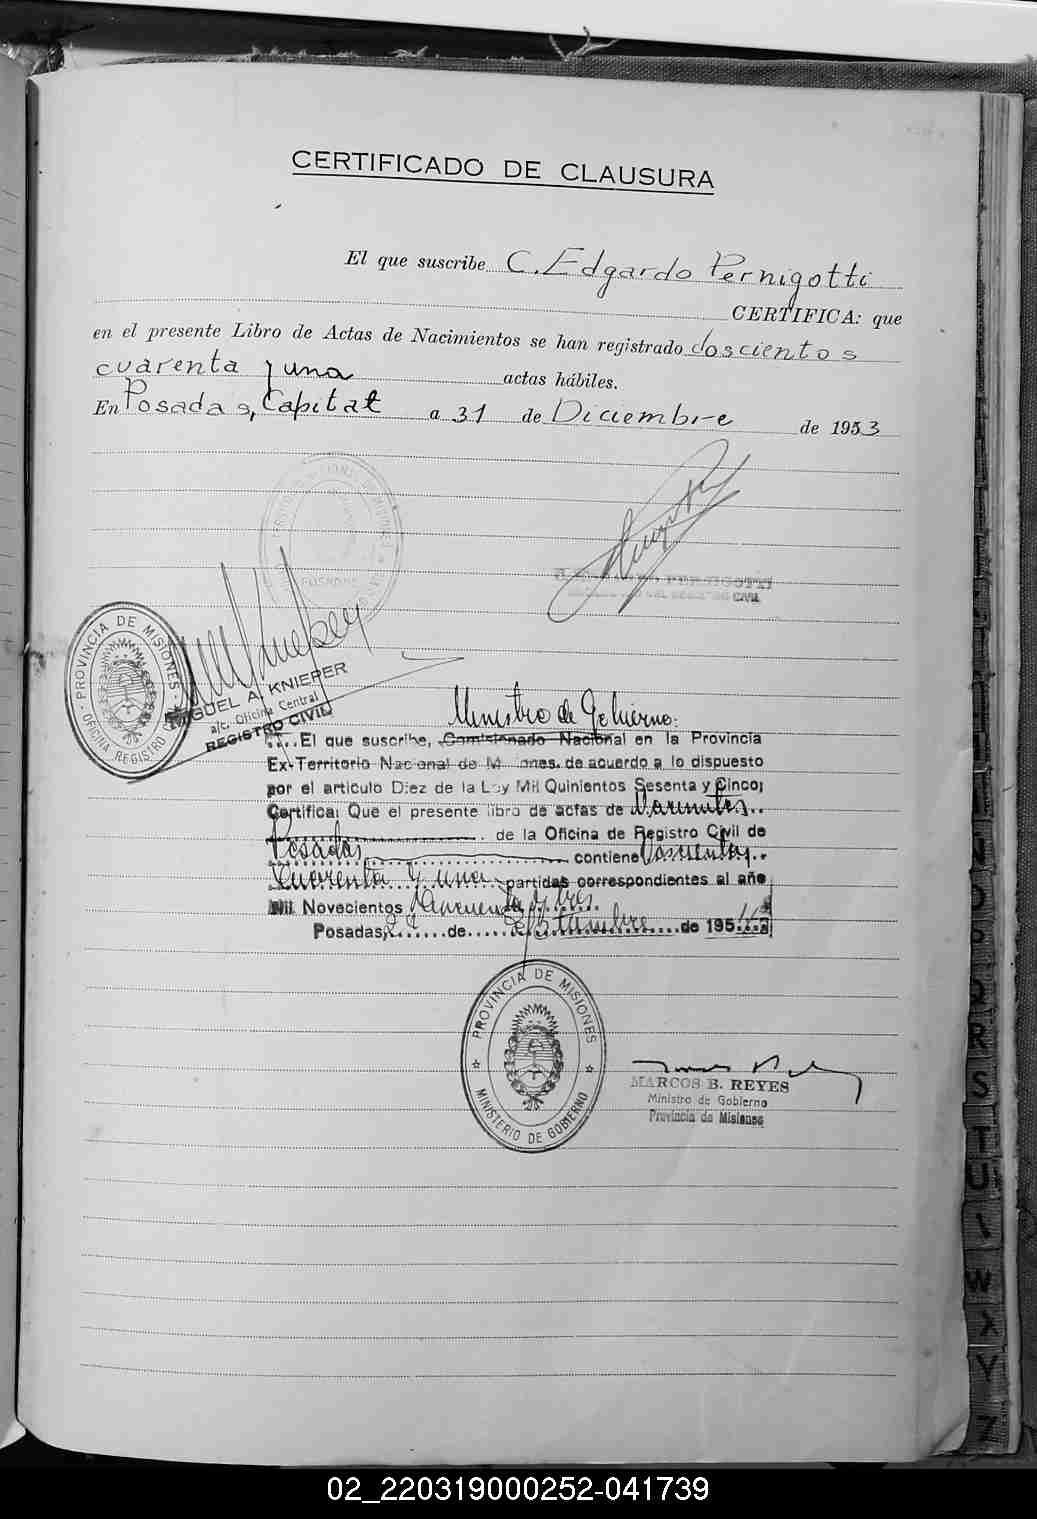 CERTIFICADO DE CLAUSURA
El que suscribe C. Edgardo Pernigotti
CERTIFICA: que
en el presente Libro de Actas de Nacimientos se han registrado doscientos
cuarenta y una actas hábiles.
En Posadas, Capital a 31 de Diciembre de 1953
PERNIGOTTI
CIVIL
PROVINCIA DE MISIONES
OFICINA REGISTRO
MIGUEL A. KNIEPER
a/c. Oficina Central
REGISTRO CIVIL
Ministro de Gobierno:
El que suscribe, Comisionado Nacional en la Provincia
Ex-Territorio Nacional de Misiones. de acuerdo a lo dispuesto
por el artículo Diez de la Ley Mil Quinientos Sesenta y Cinco;
Certifica: Que el presente libro de actas de
de la Oficina de Registro Civil de
Posadas contiene Doscientos
Cuarenta y una partidas correspondientes al año
Mil Novecientos Cincuenta y tres.
Posadas, de Setiembre de 195
PROVINCIA DE MISIONES
MINISTERIO DE GOBIERNO
MARCOS B. REYES
Ministro de Gobierno
Provincia de Misiones
R
S
T
U
W
X
Y
Z
02_220319000252-041739